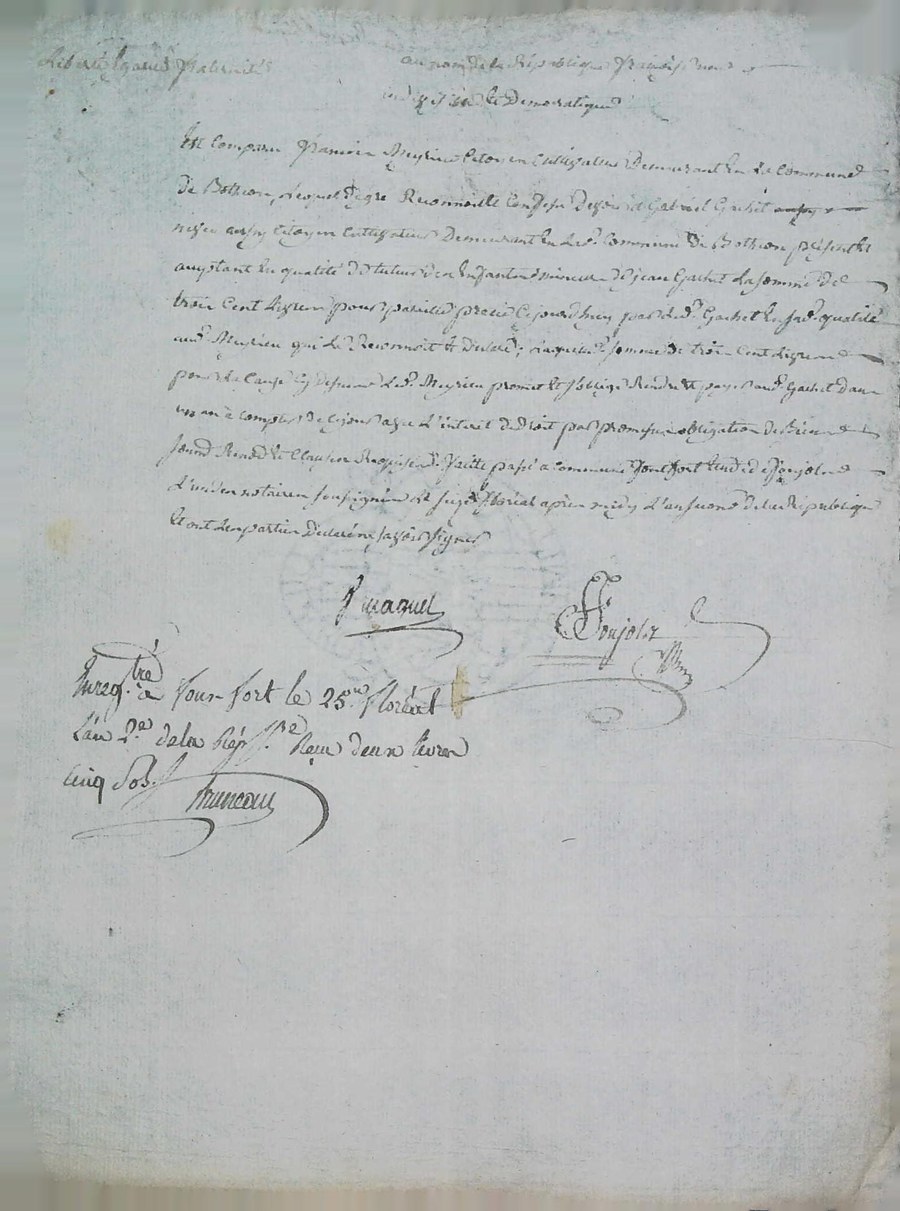 Liberté Egalité fraternité
au nom de la République française une
indivisible et Democratique
Est Comparu françois Meyrieu Citoyen Cultivateur Demeurant En la Commune
de Bothéon, lequel de gré Reconnoit devoir a Gabriel Gachet
aussy Citoyen Cultivateur Demeurant En lad. Commune de Bothéon présent et
acceptant En qualité de tuteur des Enfants mineurs de jean Gachet la somme de
trois Cent Livres pour pareille pretée Cejourdhuy par led. Gachet En sad. qualité
aud. Meyrieu qui La Reconnoit et declare, laquelle somme de trois Cent Livres
pour la Cause Cy dessus led. Meyrieu promet et s'oblige Rendre et payer aud. Gachet dans
un an à compter de Cejour avec L'interet de Droit par promesse obligation de Biens
soumis Renon. et Clauses Requises. faitte passé a Commune fontfort Etude de Ponjolz
L'un des notaires soussignés Le floréal après midy L'an second de la République
Et ont Les parties Declaré savoir signer
Ponjolz
Enregistré a fonfort le 25me floréal
L'an 2e de la Rép. fse Reçu deux livres
cinq sols
Bruneau